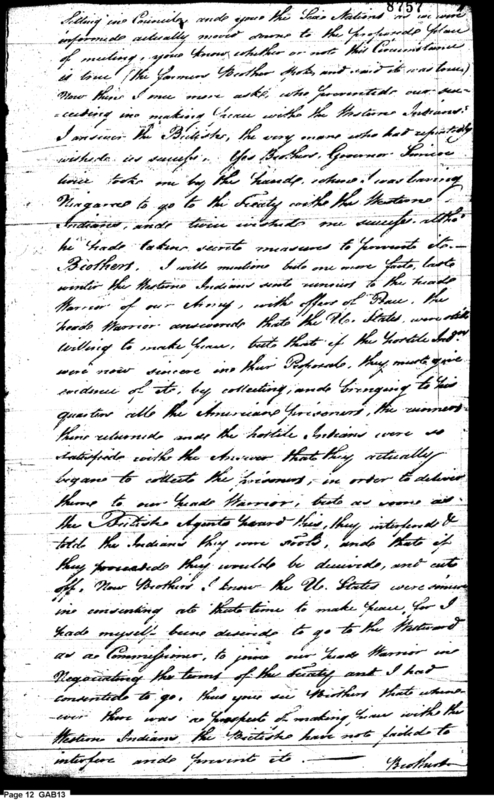 8757
sitting in Council, and you the Six Nations
informed actually moved some to the proposed place
of meeting, you know whether or not this Circumstance
is true (the Farmers Brother spoke and said it was true)
Now then I once more ask, who prevented our suc-
-ceeding in making peace with the Western Indians?
I answer the British, the very man who had repeatedly
wished us success. Yes Brothers, Governor Simcoe
twice took me by the hand, when I was leaving
Niagara to go to the Treaty with the Western
Indians, and twice wished me success, altho'
he had taken secret measures to prevent it.—
Brothers, I will mention but one more fact, last
winter the Western Indians sent runners to the head
Warrior of our Army, with offers of Peace, the
head Warrior answered that the U. States were still
willing to make peace, but that if the hostile Inds.
were now sincere in their Proposals, they must give
evidence of it, by collecting, and bringing to his
quarters all the American prisoners, the runners
then returned and the hostile Indians were so
satisfied with the Answer that they actually
began to collect the prisoners, in order to deliver
them to our head Warrior; but as soon as
the British Agents heard this, they interfered &
told the Indians they were fools, and that if
they proceeded they would be deceived, and cut
off. Now Brothers I know the U. States were sincere
in consenting at that time to make peace, for I
had myself been desired to go to the Westward
as a Commissioner, to join our head Warrior in
Negociating the terms of the Treaty and I had
consented to go. thus you see Brothers that when-
-ever there was a prospect of making peace with the
Western Indians, the British have not failed to
interfere and prevent it —
Brothers
Page 12 GAB13